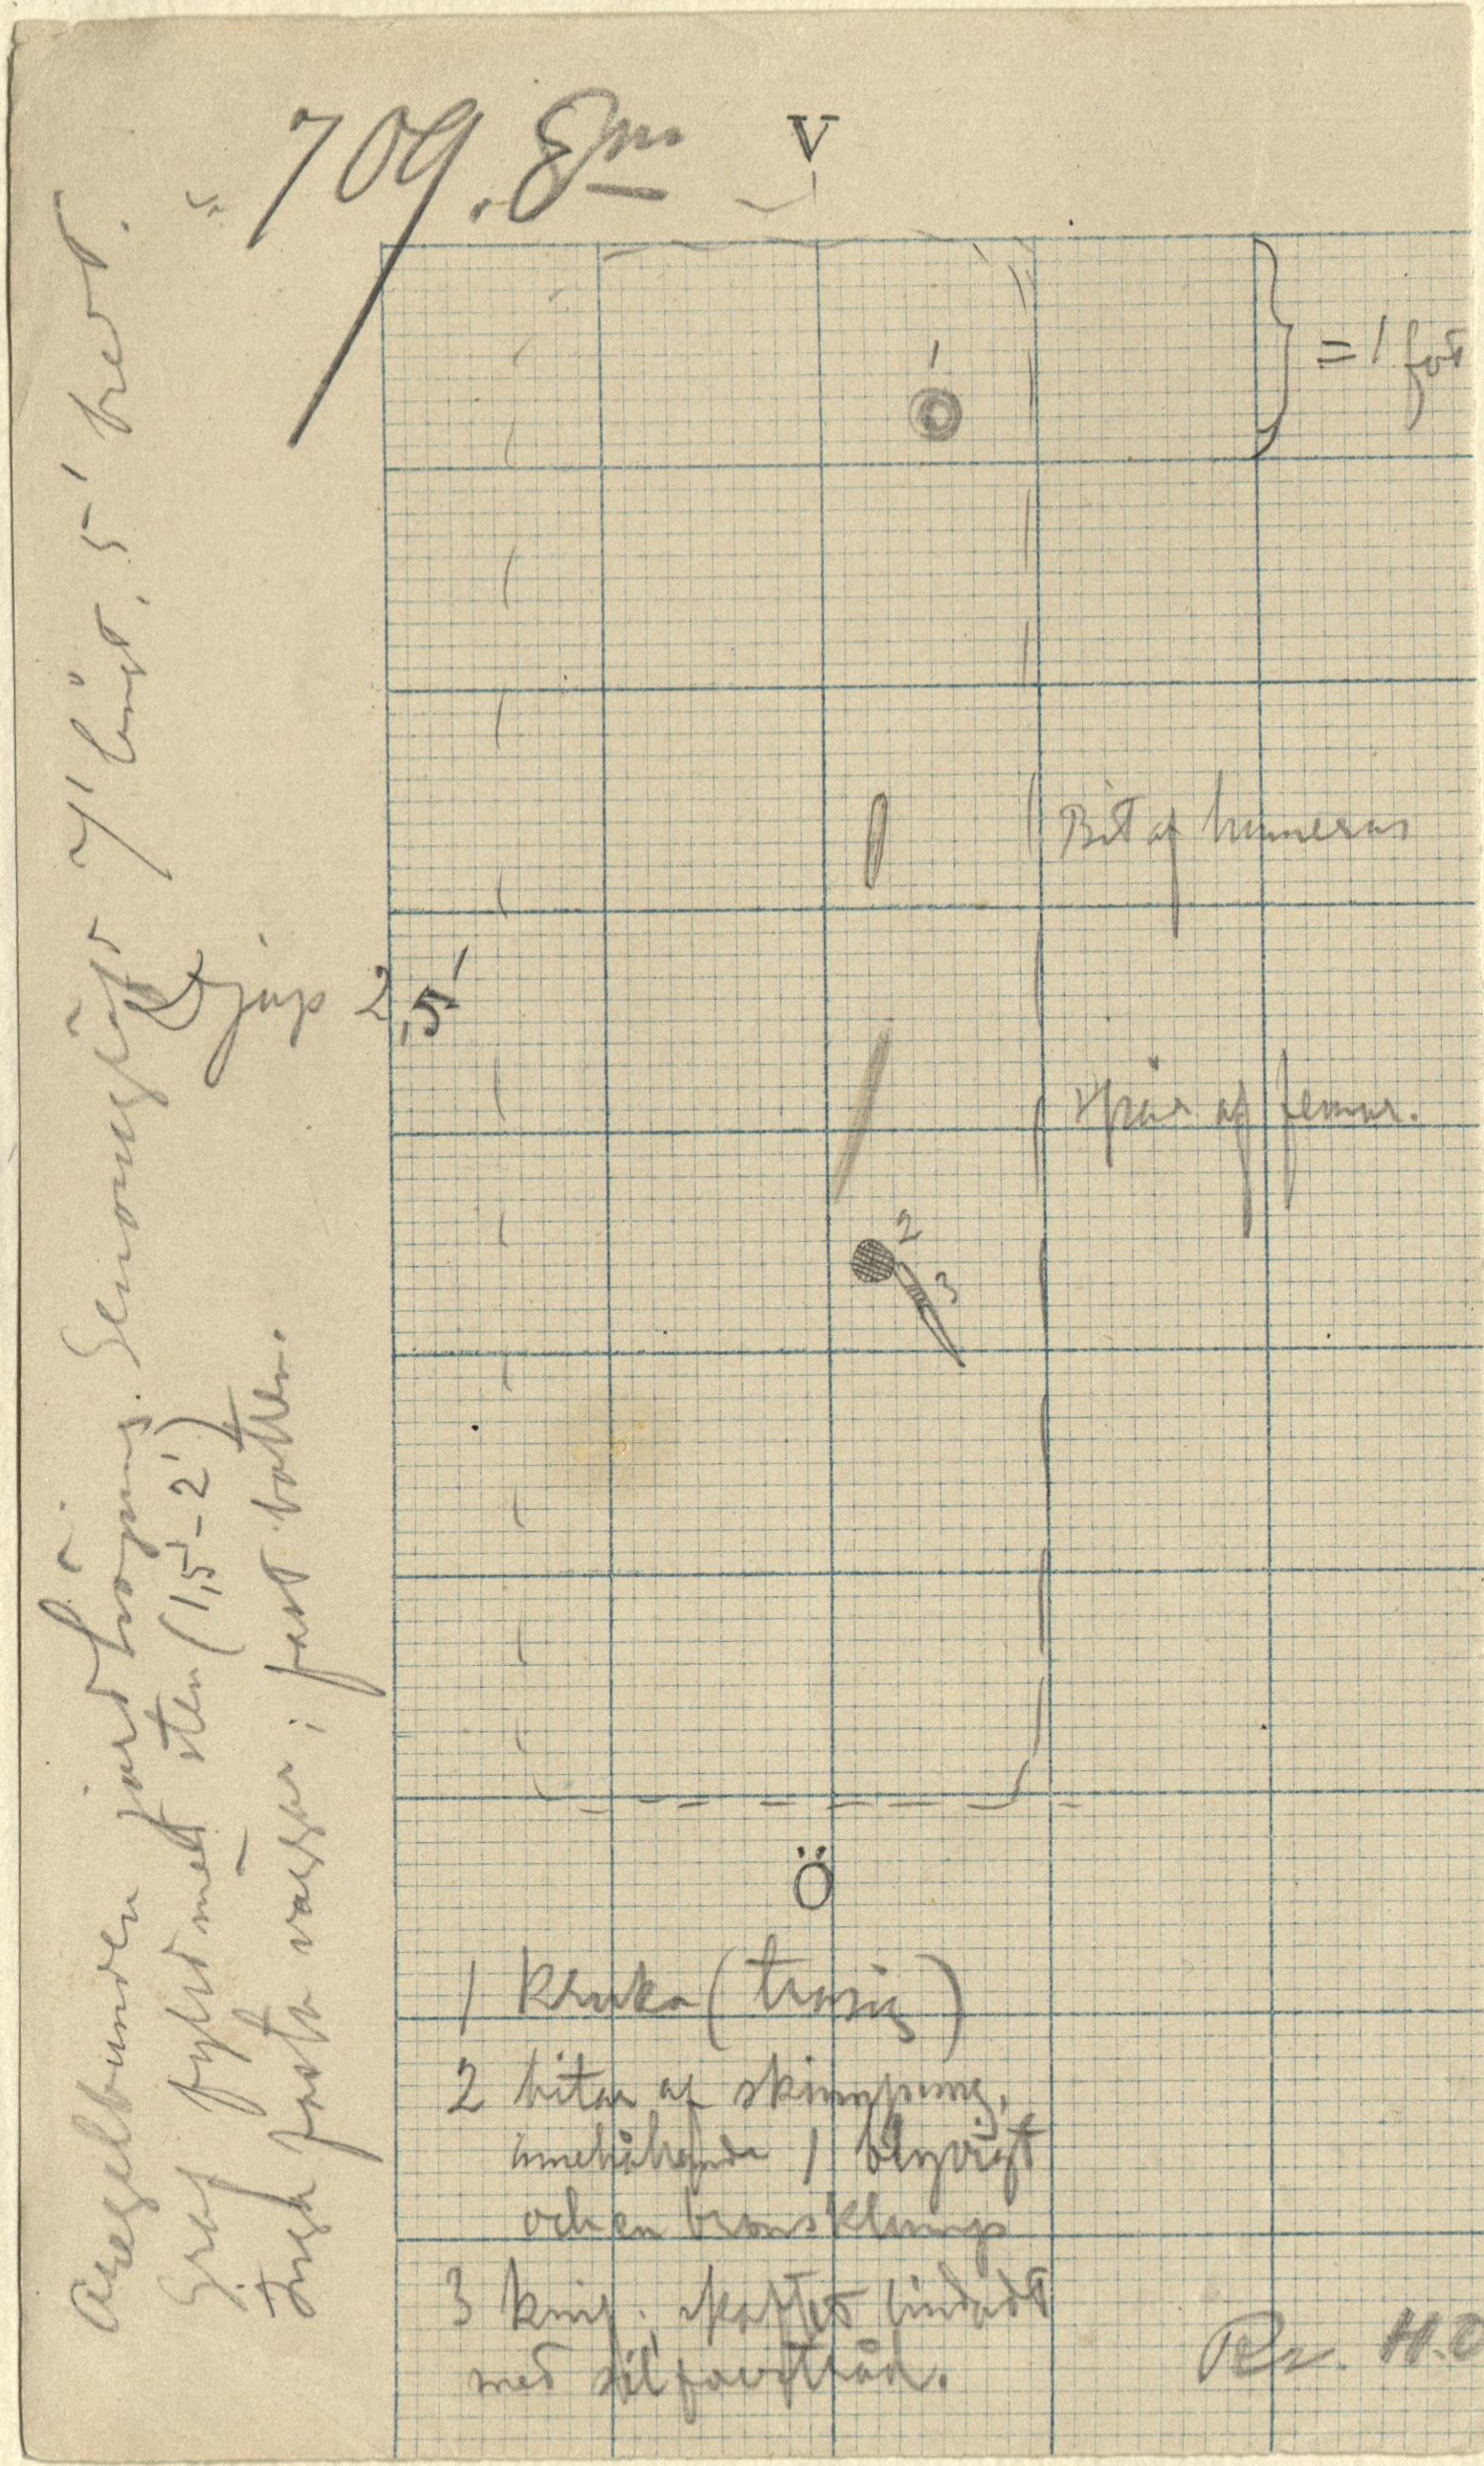 709. Em
V
= 1 fot
1
Bit af humerus
Djup 2,5'
spår af femur.
2
3
Ö
1 kruka (trasig)
2 bitar af skinnpung,
innehållande 1 blyvigt
och en bronsklump
3 knif; skaftet lindadt
med silfvertråd.
H.O
Oregelbunden jordhöjning. Genomgräfd 7' långt, 5' bredt.
Graf fylld med sten (1,5'-2')
Inga fasta väggar; fast botten.